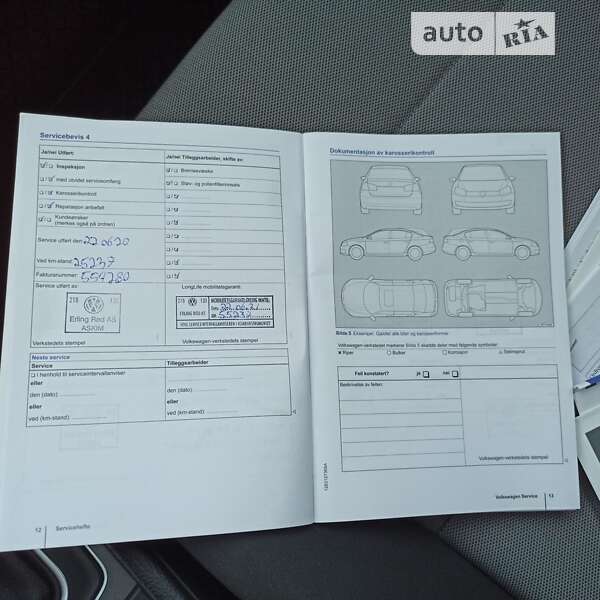 auto RIA
Servicebevis 4
Ja/nei Utført:
Ja/nei Tilleggsarbeider, skifte av:
Inspeksjon
Bremsevæske
med utvidet serviceomfang
Støv- og pollenfilterinnsats
Karosserikontroll
Reparasjon anbefalt
Kundeønsker
(merkes også på ordren)
Service utført den 22.06.20
Ved km-stand: 25237
Fakturanummer: 554280
Service utført av:
LongLife mobilitetsgaranti:
218
Erling Rød AS
ASKIM
218 120
ERLING RØD AS
55237
Verkstedets stempel
Volkswagen-verkstedets stempel
Neste service
Service
Tilleggsarbeider
i henhold til serviceintervallanviser
eller
den (dato):
den (dato):
eller
eller
ved (km-stand)
ved (km-stand):
12 Servicehefte
Dokumentasjon av karosserikontroll
Bilde 5
Volkswagen-verkstedet markerer Bilde 5 skadde deler med følgende symboler:
Riper
Bulker
Korrosjon
Steinsprut
Feil konstatert?
ja
nei
Beskrivelse av feilen:
Volkswagen-verkstedets stempel
Volkswagen Service 13